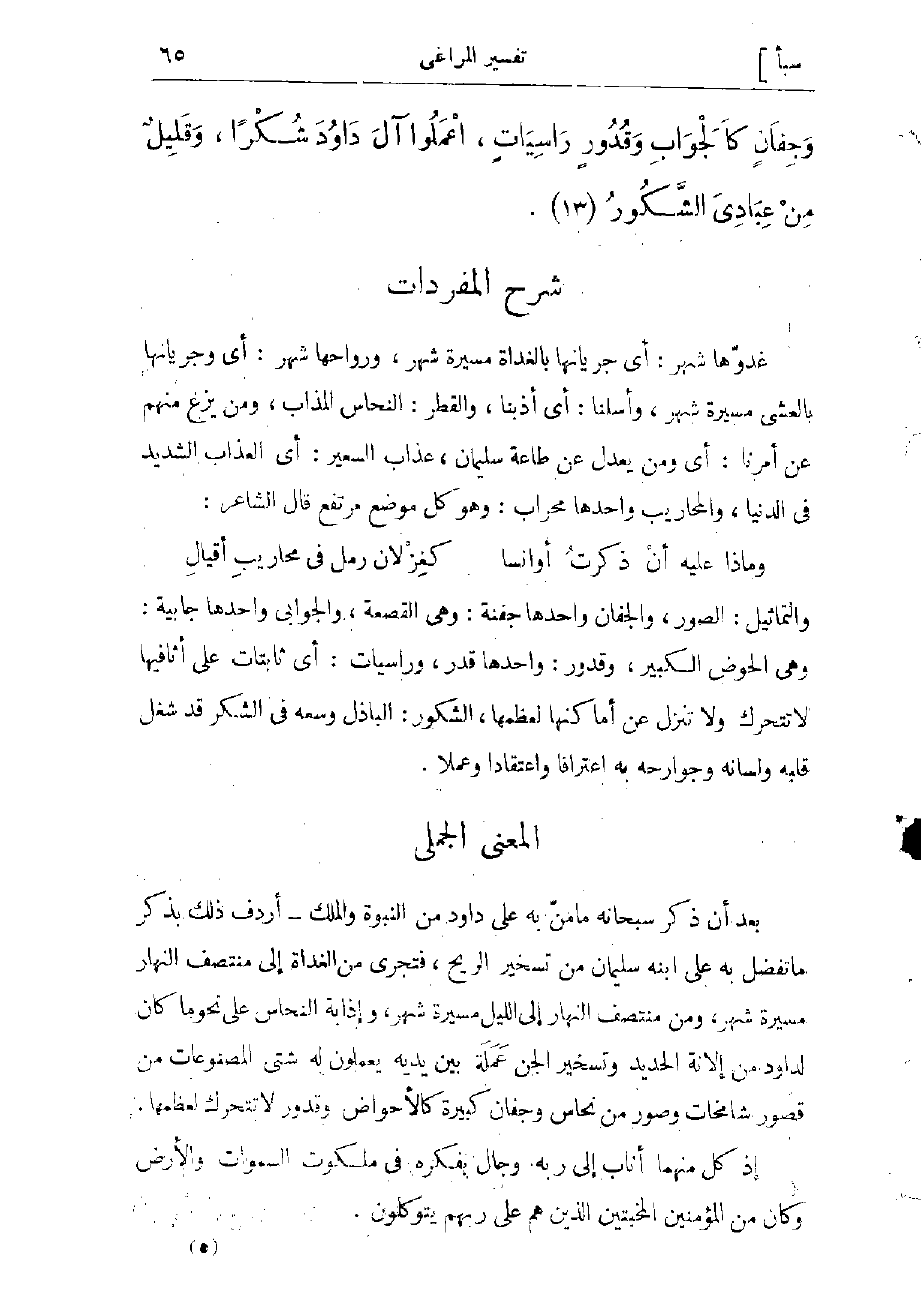 سبأ ]
تفسير المراغى
٦٥
وَجِفَانٍ كَالْجَوَابِ وَقُدُورٍ رَاسِيَاتٍ ، اعْمَلُوا آلَ دَاوُدَ شُكْرًا ، وَقَلِيلٌ
مِنْ عِبَادِىَ الشَّكُورُ (١٣) .
شرح المفردات
غدوّها شهر : أى جريانها بالغداة مسيرة شهر ، ورواحها شهر : أى وجريانها
بالعشى مسيرة شهر ، وأسلنا : أى أذبنا ، والقطر : النحاس المذاب ، ومن يزغ منهم
عن أمرنا : أى ومن يعدل عن طاعة سليمان ، عذاب السعير : أى العذاب الشديد
فى الدنيا ، والمحاريب واحدها محراب : وهو كل موضع مرتفع قال الشاعر :
وماذا عليه أنْ ذكرتُ أوانسا كغِزْلان رمل فى محاريبِ أقيالِ
والتماثيل : الصور ، والجفان واحدها جفنة : وهى القصعة ، والجوابى واحدها جابية :
وهى الحوض الكبير ، وقدور : واحدها قدر ، وراسيات : أى ثابتات على أثافيها
لاتتحرك ولا تنزل عن أماكنها لعظمها ، الشكور : الباذل وسعه فى الشكر قد شغل
قلبه ولسانه وجوارحه به اعترافا واعتقادا وعملا .
المعنى الجملى
بعد أن ذكر سبحانه مامنّ به على داود من النبوة والملك – أردف ذلك بذكر
ماتفضل به على ابنه سليمان من تسخير الريح ، فتجرى من الغداة إلى منتصف النهار
مسيرة شهر، ومن منتصف النهار إلى الليل مسيرة شهر، وإذابة النحاس على نحو ما كان
لداود من إلانة الحديد وتسخير الجن عَمَلَة بين يديه يعملون له شتى المصنوعات من
قصور شامخات وصور من نحاس وجفان كبيرة كالأحواض وقدور لاتتحرك لعظمها .
إذ كل منهما أناب إلى ربه وجال بفكره فى ملكوت السموات والأرض
وكان من المؤمنين المخبتين الذين هم على ربهم يتوكلون .
(٥)